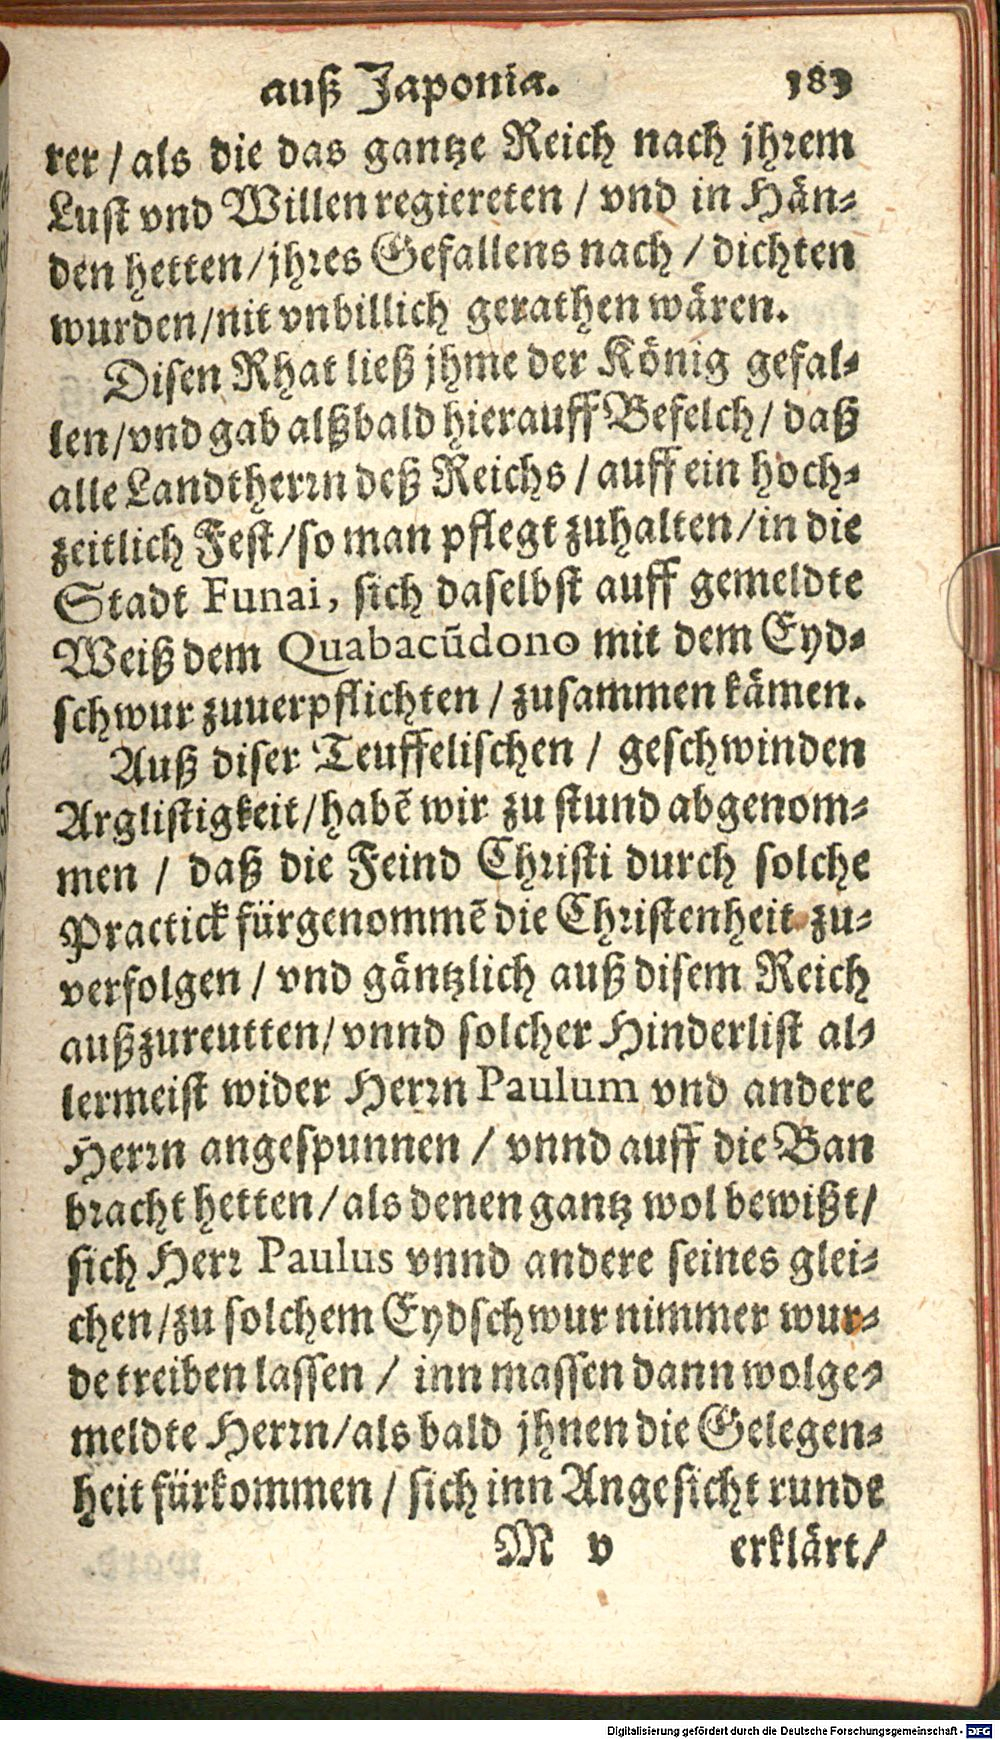 auß Japonia. 183
rer / als die das gantze Reich nach jhrem
Lust vnd Willen regiereten / vnd in Hän-
den hetten / jhres Gefallens nach / dichten
wurden / nit vnbillich gerathen wären.
Disen Rhat ließ jhme der König gefal-
len / vnd gab alßbald hierauff Befelch / daß
alle Landtherrn deß Reichs / auff ein hoch-
zeitlich Fest / so man pflegt zuhalten / in die
Stadt Funai, sich daselbst auff gemeldte
Weiß dem Quabacũdono mit dem Eyd-
schwur zuuerpflichten / zusammen kämen.
Auß diser Teuffelischen / geschwinden
Arglistigkeit / habẽ wir zu stund abgenom-
men / daß die Feind Christi durch solche
Practick fürgenommẽ die Christenheit zu-
verfolgen / vnd gäntzlich auß disem Reich
außzureutten / vnnd solcher Hinderlist al-
lermeist wider Herrn Paulum vnd andere
Herrn angespunnen / vnnd auff die Ban
bracht hetten / als denen gantz wol bewißt /
sich Herr Paulus vnnd andere seines glei-
chen / zu solchem Eydschwur nimmer wur-
de treiben lassen / inn massen dann wolge-
meldte Herrn / als bald jhnen die Gelegen-
heit fürkommen / sich inn Angesicht runde
M v erklärt /
Digitalisierung gefördert durch die Deutsche Forschungsgemeinschaft - DFG